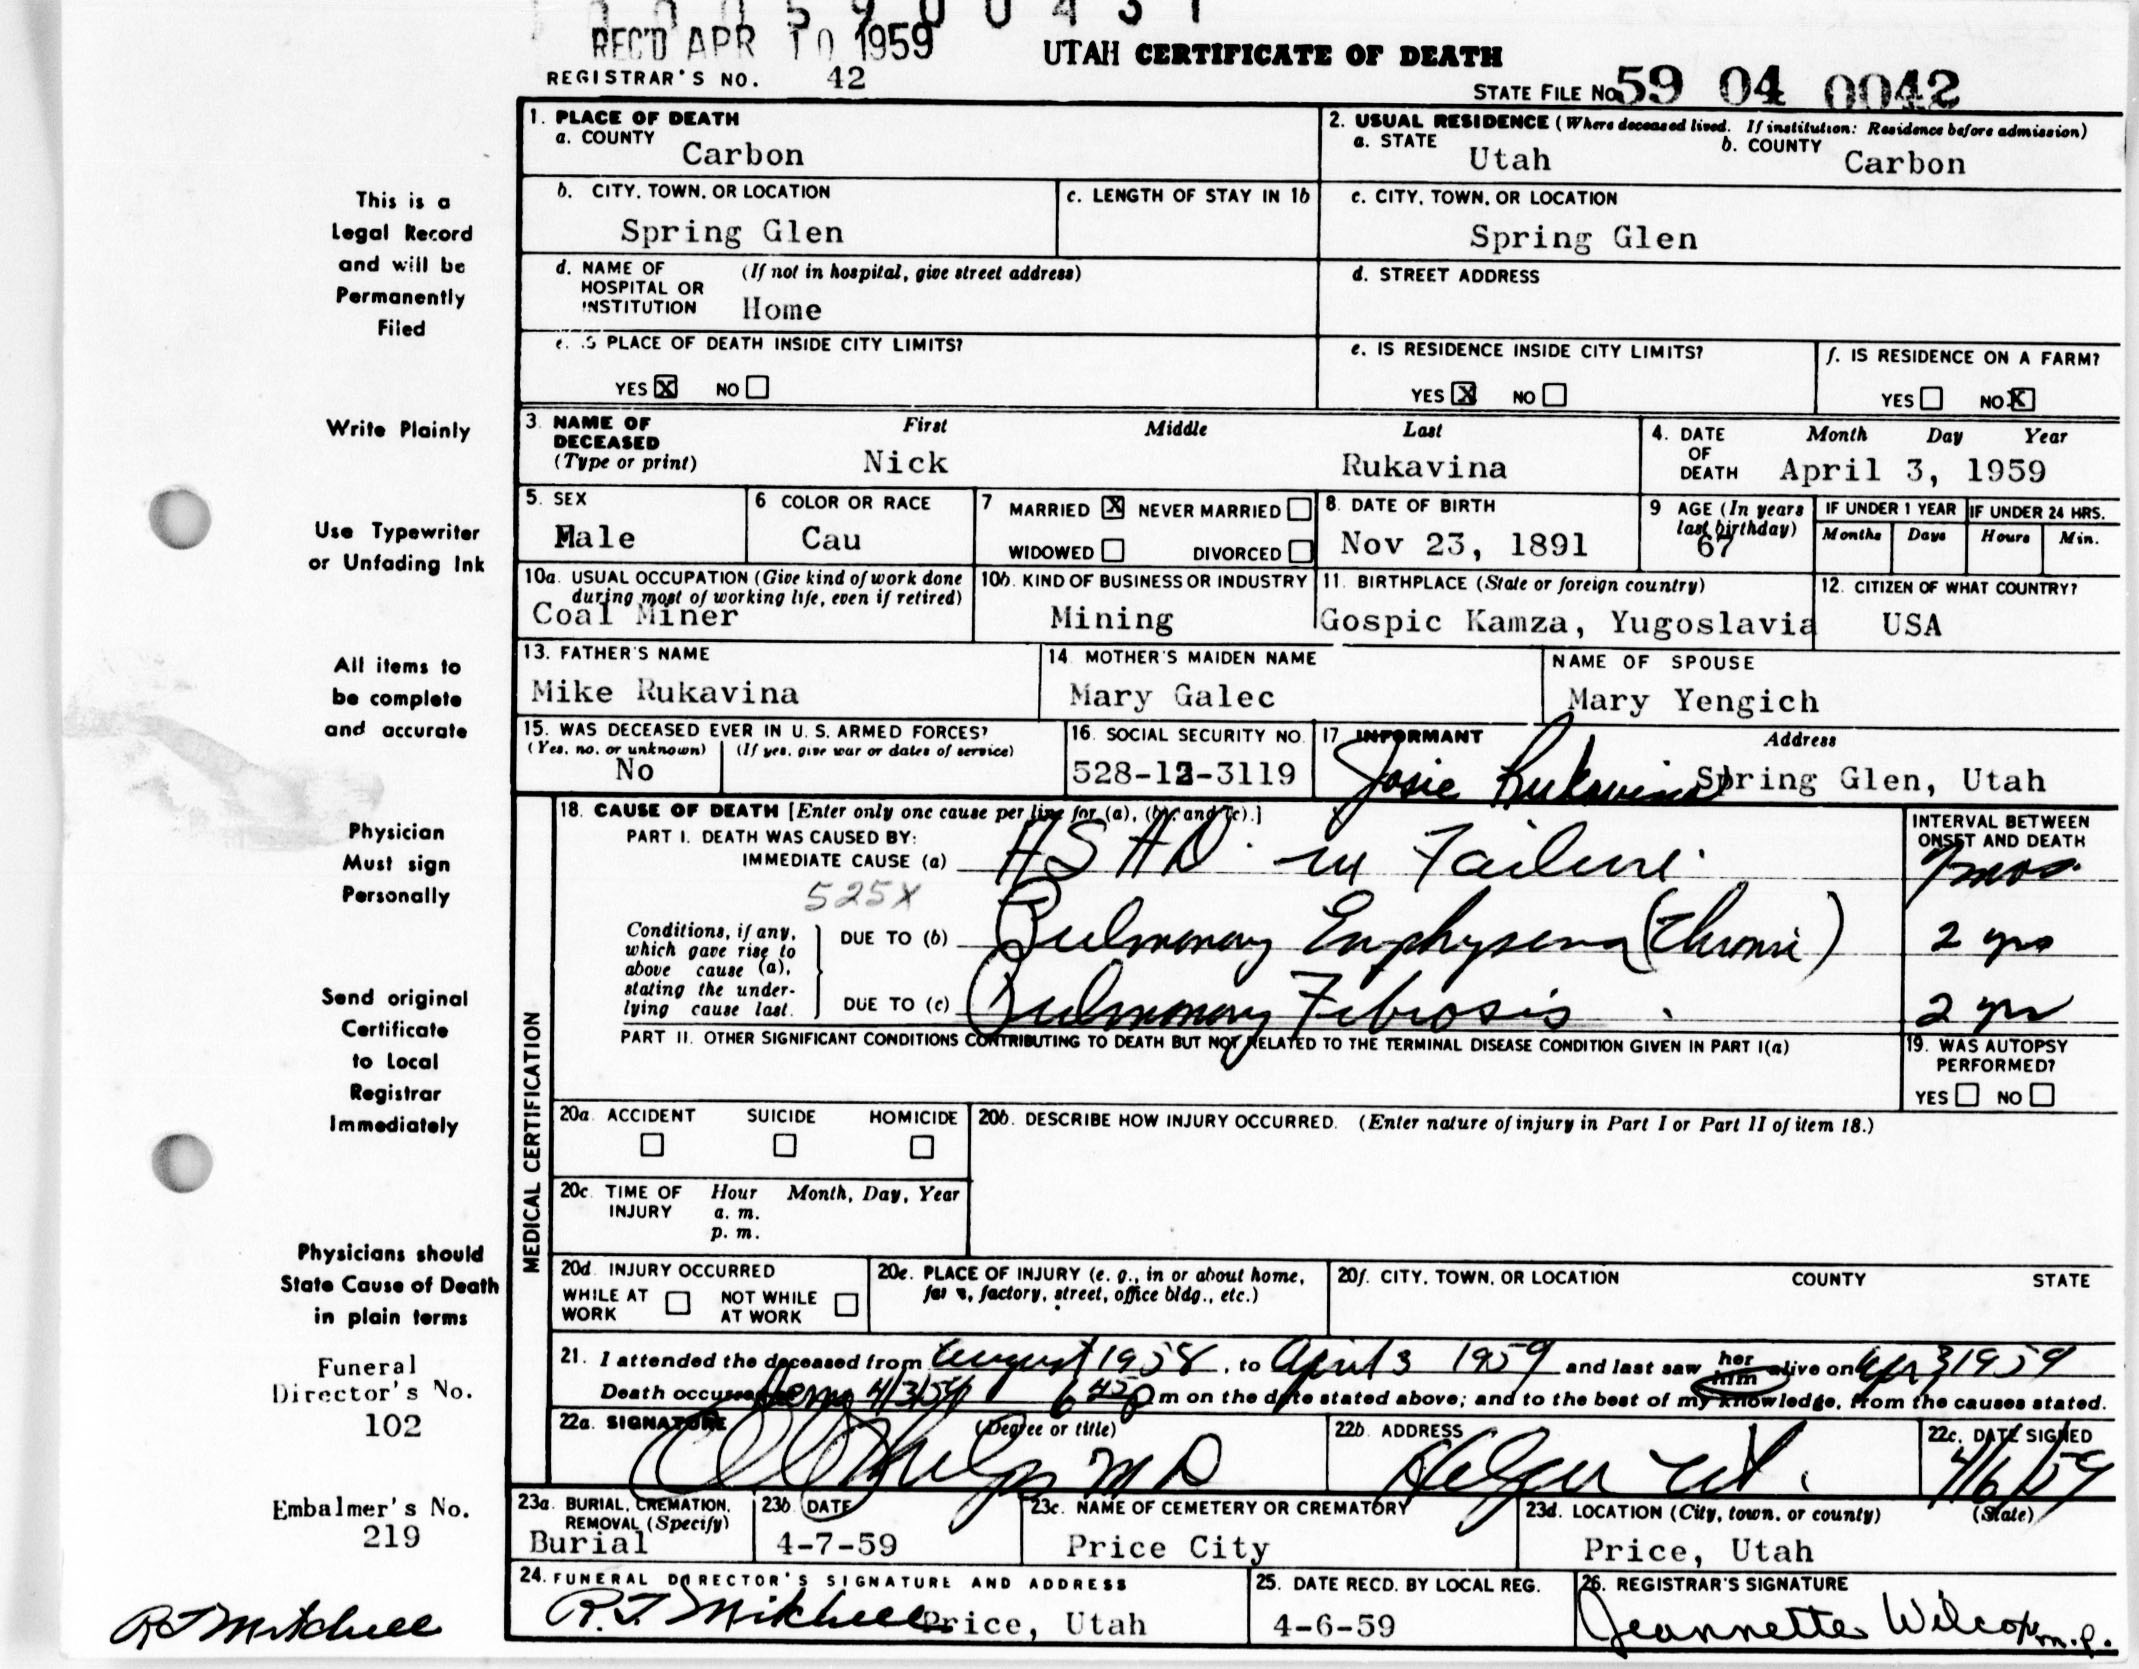 REC'D APR 10 1959
UTAH CERTIFICATE OF DEATH
REGISTRAR'S NO. 42
STATE FILE No. 59 04 0042
This is a
Legal Record
and will be
Permanently
Filed
Write Plainly
Use Typewriter
or Unfading Ink
All items to
be complete
and accurate
Physician
Must sign
Personally
Send original
Certificate
to Local
Registrar
Immediately
Physicians should
State Cause of Death
in plain terms
Funeral
Director's No.
102
Embalmer's No.
219
R T Mitchell
1. PLACE OF DEATH
a. COUNTY Carbon
2. USUAL RESIDENCE (Where deceased lived. If institution: Residence before admission)
a. STATE Utah b. COUNTY Carbon
b. CITY, TOWN, OR LOCATION Spring Glen
c. LENGTH OF STAY IN 1b
c. CITY, TOWN, OR LOCATION Spring Glen
d. NAME OF HOSPITAL OR INSTITUTION (If not in hospital, give street address) Home
d. STREET ADDRESS
e. IS PLACE OF DEATH INSIDE CITY LIMITS?
YES X NO
e. IS RESIDENCE INSIDE CITY LIMITS?
YES X NO
f. IS RESIDENCE ON A FARM?
YES NO X
3. NAME OF DECEASED (Type or print) First Middle Last
Nick Rukavina
4. DATE OF DEATH Month Day Year
April 3, 1959
5. SEX Male
6 COLOR OR RACE Cau
7 MARRIED X NEVER MARRIED
WIDOWED DIVORCED
8. DATE OF BIRTH Nov 23, 1891
9 AGE (In years last birthday) 67
IF UNDER 1 YEAR Months Days
IF UNDER 24 HRS. Hours Min.
10a. USUAL OCCUPATION (Give kind of work done during most of working life, even if retired)
Coal Miner
10b. KIND OF BUSINESS OR INDUSTRY Mining
11. BIRTHPLACE (State or foreign country) Gospic Kamza, Yugoslavia
12. CITIZEN OF WHAT COUNTRY? USA
13. FATHER'S NAME Mike Rukavina
14. MOTHER'S MAIDEN NAME Mary Galec
NAME OF SPOUSE Mary Yengich
15. WAS DECEASED EVER IN U. S. ARMED FORCES?
(Yes, no, or unknown) (If yes, give war or dates of service)
No
16. SOCIAL SECURITY NO. 528-12-3119
17. INFORMANT Address
Josie Rukavina Spring Glen, Utah
MEDICAL CERTIFICATION
18. CAUSE OF DEATH [Enter only one cause per line for (a), (b), and (c).]
PART I. DEATH WAS CAUSED BY:
IMMEDIATE CAUSE (a) ASHD in Failure.
INTERVAL BETWEEN ONSET AND DEATH
525X
Conditions, if any, which gave rise to above cause (a), stating the underlying cause last.
DUE TO (b) Pulmonary Emphysema (Chronic) 2 yrs
DUE TO (c) Pulmonary Fibrosis 2 yrs
PART II. OTHER SIGNIFICANT CONDITIONS CONTRIBUTING TO DEATH BUT NOT RELATED TO THE TERMINAL DISEASE CONDITION GIVEN IN PART I(a)
19. WAS AUTOPSY PERFORMED?
YES NO
20a. ACCIDENT SUICIDE HOMICIDE
20b. DESCRIBE HOW INJURY OCCURRED. (Enter nature of injury in Part I or Part II of item 18.)
20c. TIME OF INJURY Hour Month, Day, Year
a. m.
p. m.
20d. INJURY OCCURRED
WHILE AT WORK NOT WHILE AT WORK
20e. PLACE OF INJURY (e. g., in or about home, farm, factory, street, office bldg., etc.)
20f. CITY, TOWN, OR LOCATION COUNTY STATE
21. I attended the deceased from August 1958, to April 3 1959 and last saw her him alive on Apr 3 1959
Death occurred at Home 4/3/59 6 45 p m on the date stated above; and to the best of my knowledge, from the causes stated.
22a. SIGNATURE (Degree or title)
M D
22b. ADDRESS Helper Ut.
22c. DATE SIGNED 4/6/59
23a. BURIAL, CREMATION, REMOVAL (Specify) Burial
23b. DATE 4-7-59
23c. NAME OF CEMETERY OR CREMATORY Price City
23d. LOCATION (City, town, or county) (State) Price, Utah
24. FUNERAL DIRECTOR'S SIGNATURE AND ADDRESS
R. T. Mitchell Price, Utah
25. DATE RECD. BY LOCAL REG. 4-6-59
26. REGISTRAR'S SIGNATURE
Jeannette Wilcox m.p.